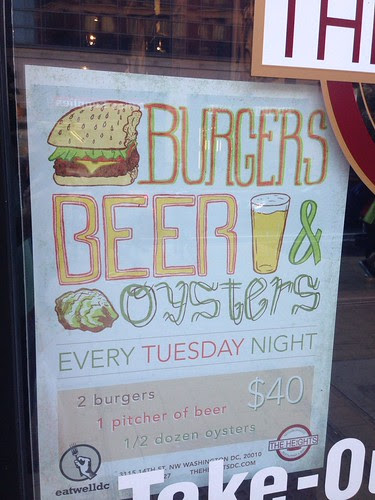 TH
BURGERS
BEER &
oysters
EVERY TUESDAY NIGHT
2 burgers
1 pitcher of beer
1/2 dozen oysters
$40
THE HEIGHTS
eatwelldc
3115 14TH ST, NW WASHINGTON DC, 20010
27 THEHEIGHTSDC.COM
Take-Ou